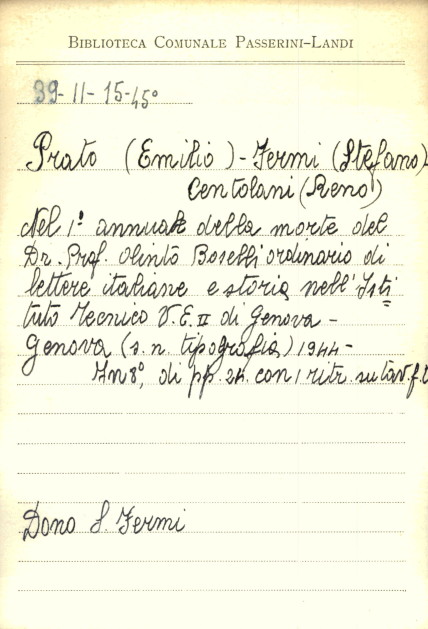 BIBLIOTECA COMUNALE PASSERINI-LANDI
39-II-15-45°
Prato (Emilio) - Fermi (Stefano)
Centolani (Reno)
Nel 1° annuale della morte del
Dr. Prof. Olinto Boselli ordinario di
lettere italiane e storia nell'Isti
tuto Tecnico V.E. II di Genova -
Genova (s. n. tipografia) 1944 -
In 8°, di pp. 24. con 1 ritr. su tav. f. t.
Dono S. Fermi